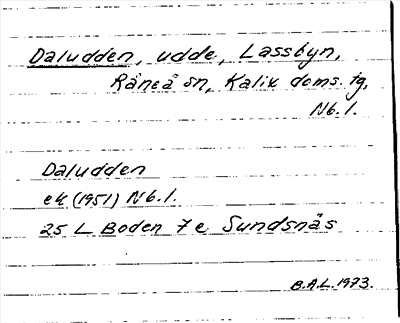 Daludden, udde, Lassbyn,
Råneå sn, Kalix doms. tg,
Nb. l.
Daludden
ek (1951) Nb. l.
25 L Boden 7 e Sundsnäs
B.A.L. 1973.